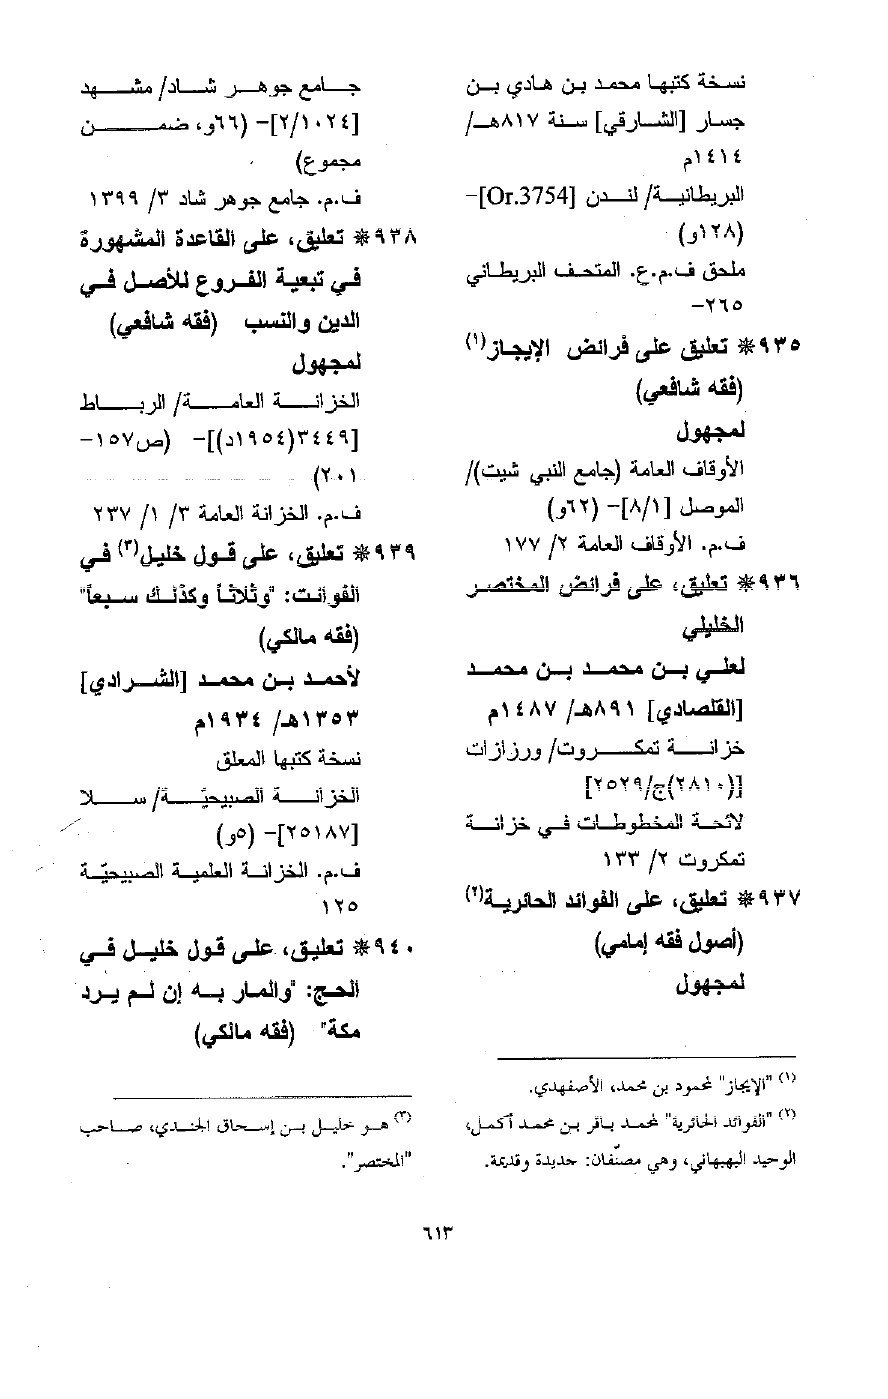 نسخة كتبها محمد بن هادي بن
جسار [الشارقي] سنة ٨١٧هـ/
١٤١٤م
البريطانية/ لندن [Or.3754]-
(١٢٨و)
ملحق ف.م.ع. المتحف البريطاني
٢٦٥-
٩٣٥* تعليق على فرائض الإيجاز(١)
(فقه شافعي)
لمجهول
الأوقاف العامة (جامع النبي شيت)/
الموصل [٨/١]- (٦٢و)
ف.م. الأوقاف العامة ٢/ ١٧٧
٩٣٦* تعليق، على فرائض المختصر
الخليلي
لعلي بن محمد بن محمد
[القلصادي] ٨٩١هـ/ ١٤٨٧م
خزانة تمكروت/ ورزازات
[(٢٨١٠)ج/٢٥٢٩]
لائحة المخطوطات في خزانة
تمكروت ٢/ ١٣٣
٩٣٧* تعليق، على الفوائد الحائرية(٢)
(أصول فقه إمامي)
لمجهول
(١) "الإيجاز" لمحمود بن محمد، الأصفهدي.
(٢) "الفوائد الحائرية" لمحمد باقر بن محمد أكمل،
الوحيد البهبهاني، وهي مصنّفان: جديدة وقديمة.
جامع جوهر شاد/ مشهد
[٢/١٠٢٤]- (٦٦و، ضمن
مجموع)
ف.م. جامع جوهر شاد ٣/ ١٣٩٩
٩٣٨* تعليق، على القاعدة المشهورة
في تبعية الفروع للأصل في
الدين والنسب (فقه شافعي)
لمجهول
الخزانة العامة/ الرباط
[٣٤٤٩(١٩٥٤د)]- (ص١٥٧-
٢٠١)
ف.م. الخزانة العامة ٣/ ١/ ٢٣٧
٩٣٩* تعليق، على قول خليل(٣) في
الفوائت: "وثلاثاً وكذلك سبعاً"
(فقه مالكي)
لأحمد بن محمد [الشرادي]
١٣٥٣هـ/ ١٩٣٤م
نسخة كتبها المعلق
الخزانة الصبيحيّة/ سلا
[٢٥١٨٧]- (٥و)
ف.م. الخزانة العلمية الصبيحيّة
١٢٥
٩٤٠* تعليق، على قول خليل في
الحج: "والمار به إن لم يرد
مكة" (فقه مالكي)
(٣) هو خليل بن إسحاق الجندي، صاحب
"المختصر".
٦١٣